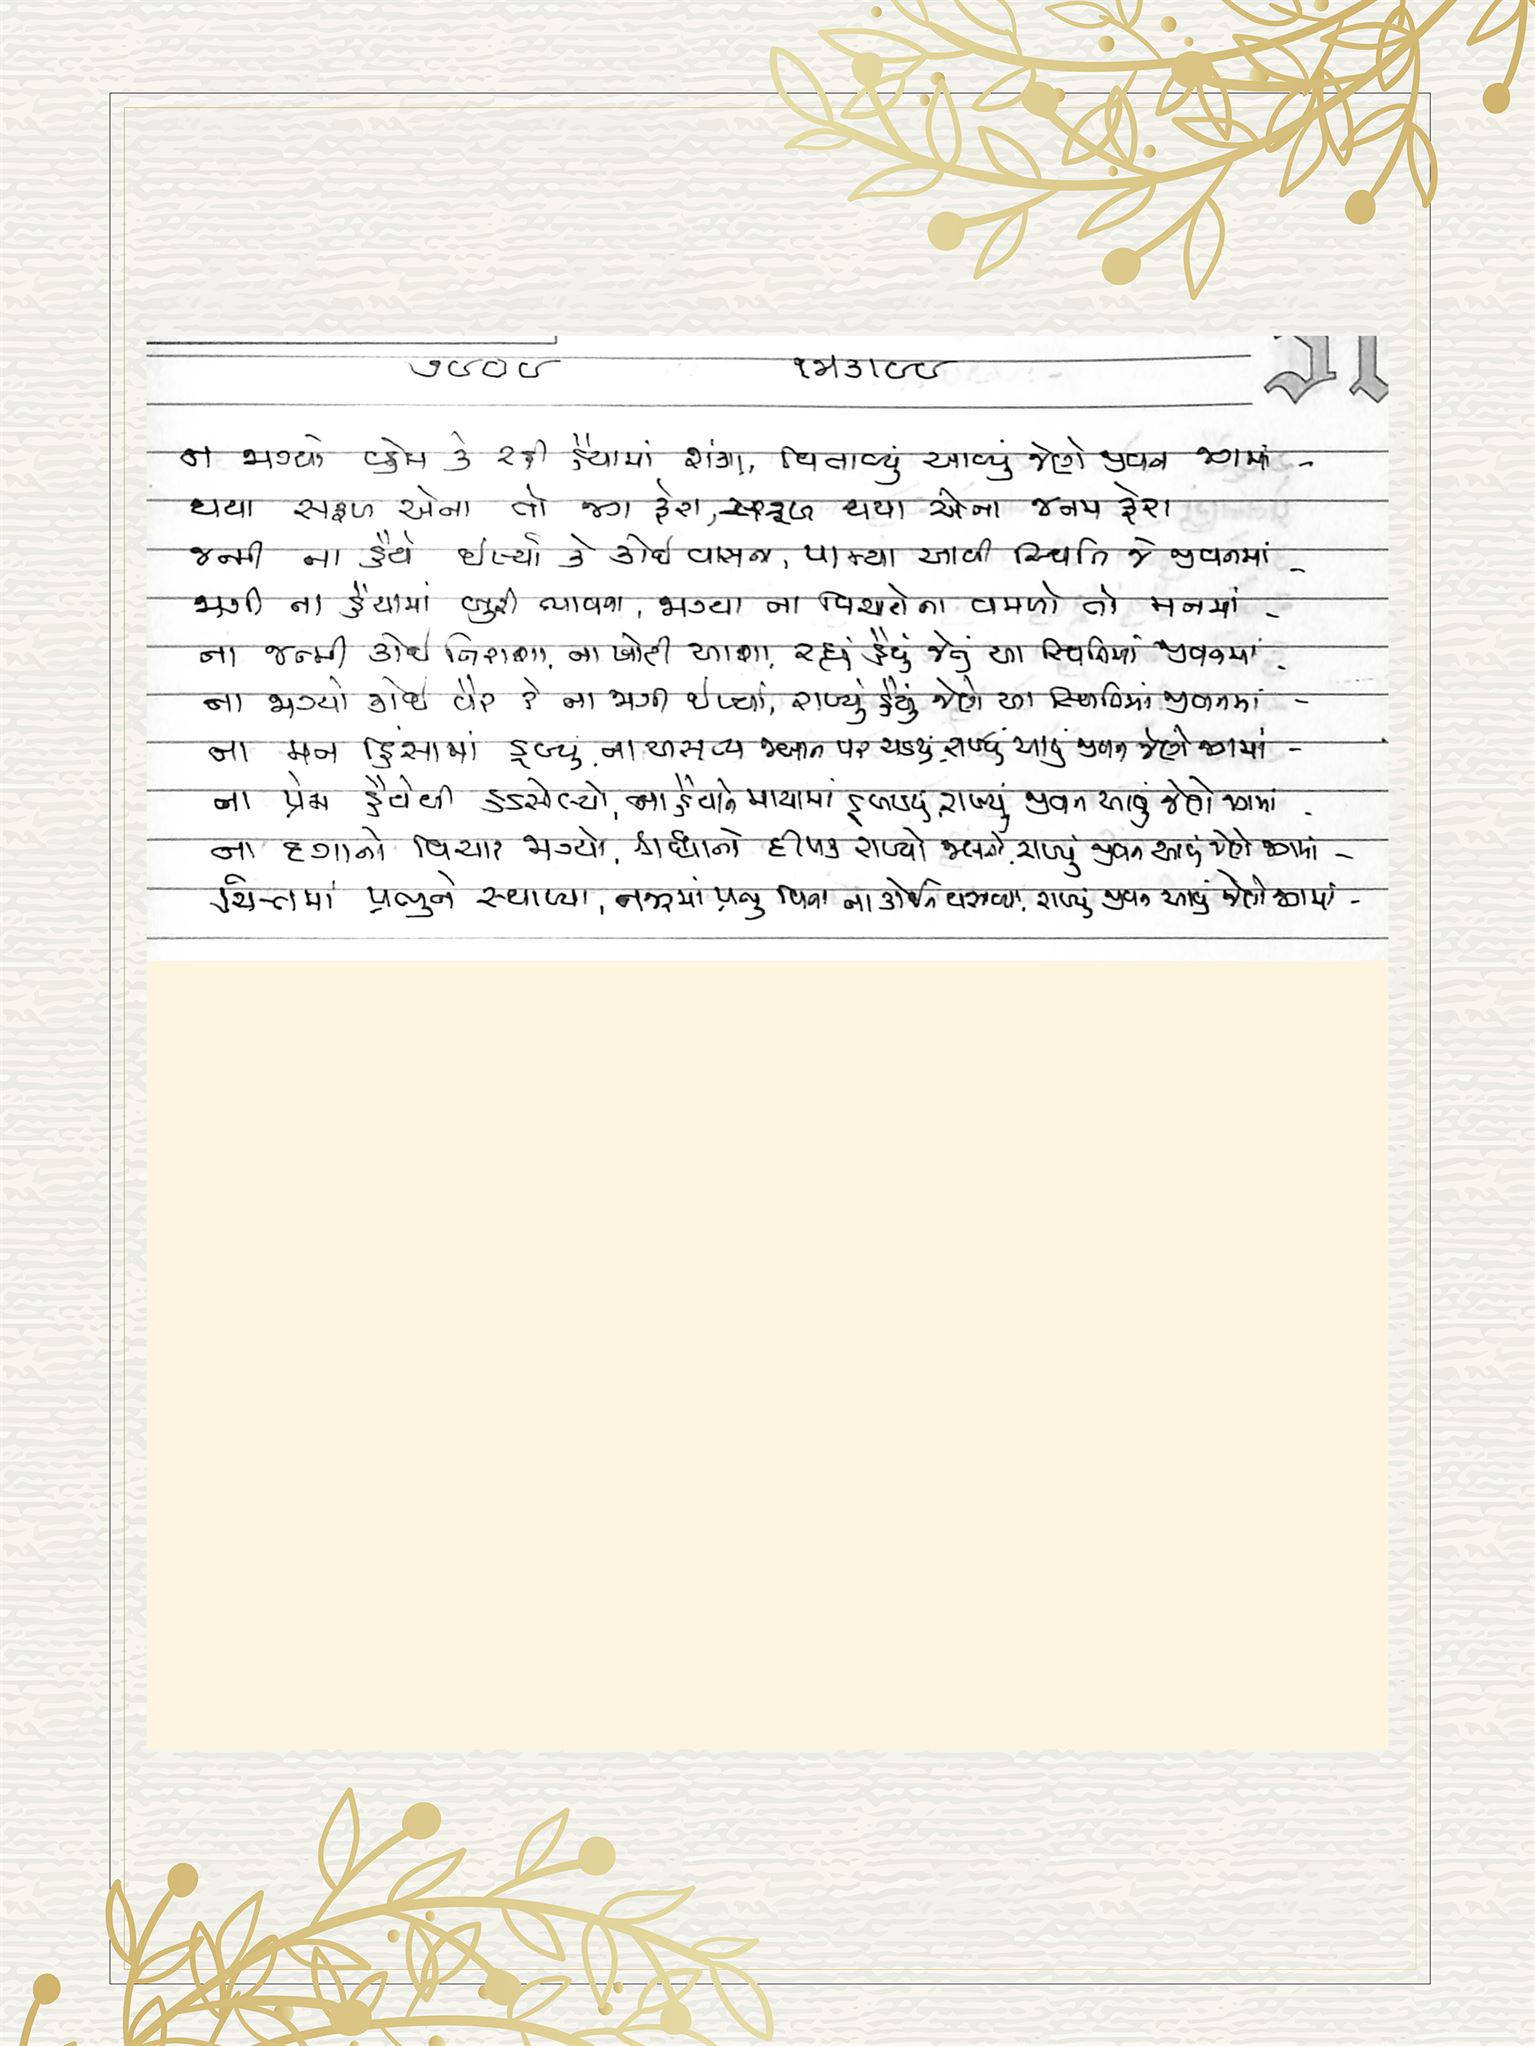 ૭૯૦૯ ૧મ૩ા૯૯
ન જાગ્યો ક્રોધ કે રહી હૈયામાં શંકા, વિતાવ્યું આવ્યું જેણે જીવન જગમાં -
થયા સફળ એના તો જગ ફેરા, સફળ થયા એના જનમ ફેરા
જન્મી ના હૈયે ઈર્ષ્યા કે કોઈ વાસના, પામ્યા આવી સ્થિતિ જે જીવનમાં -
જાગી ના હૈયામાં બુરી ભાવના, જાગ્યા ના વિચારોના વમળો તો મનમાં -
ના જન્મી કોઈ નિરાશા, ના ખોટી આશા, રહ્યું હૈયું જેનું આ સ્થિતિમાં જીવનમાં -
ના જાગ્યો કોઈ વૈર રે ના જાગી ઈર્ષ્યા, રાખ્યું હૈયું જેણે આ સ્થિતિમાં જીવનમાં -
ના મન હિંસામાં ડૂબ્યું, ના અસત્ય જબાન પર ચડયું, રાખ્યું આવું જીવન જેણે જગમાં -
ના પ્રેમ હૈયેથી હડસેલ્યો, ના હૈયાને માયામાં ડૂબાડયું, રાખ્યું જીવન આવું જેણે જગમાં -
ના દગાનો વિચાર જાગ્યો, શ્રદ્ધાનો દીપક રાખ્યો જલતો, રાખ્યું જીવન આવું જેણે જગમાં -
ચિત્તમાં પ્રભુને સ્થાપ્યા, નજરમાં પ્રભુ વિના ના કોઈને વસાવ્યા, રાખ્યું જીવન આવું જેણે જગમાં -